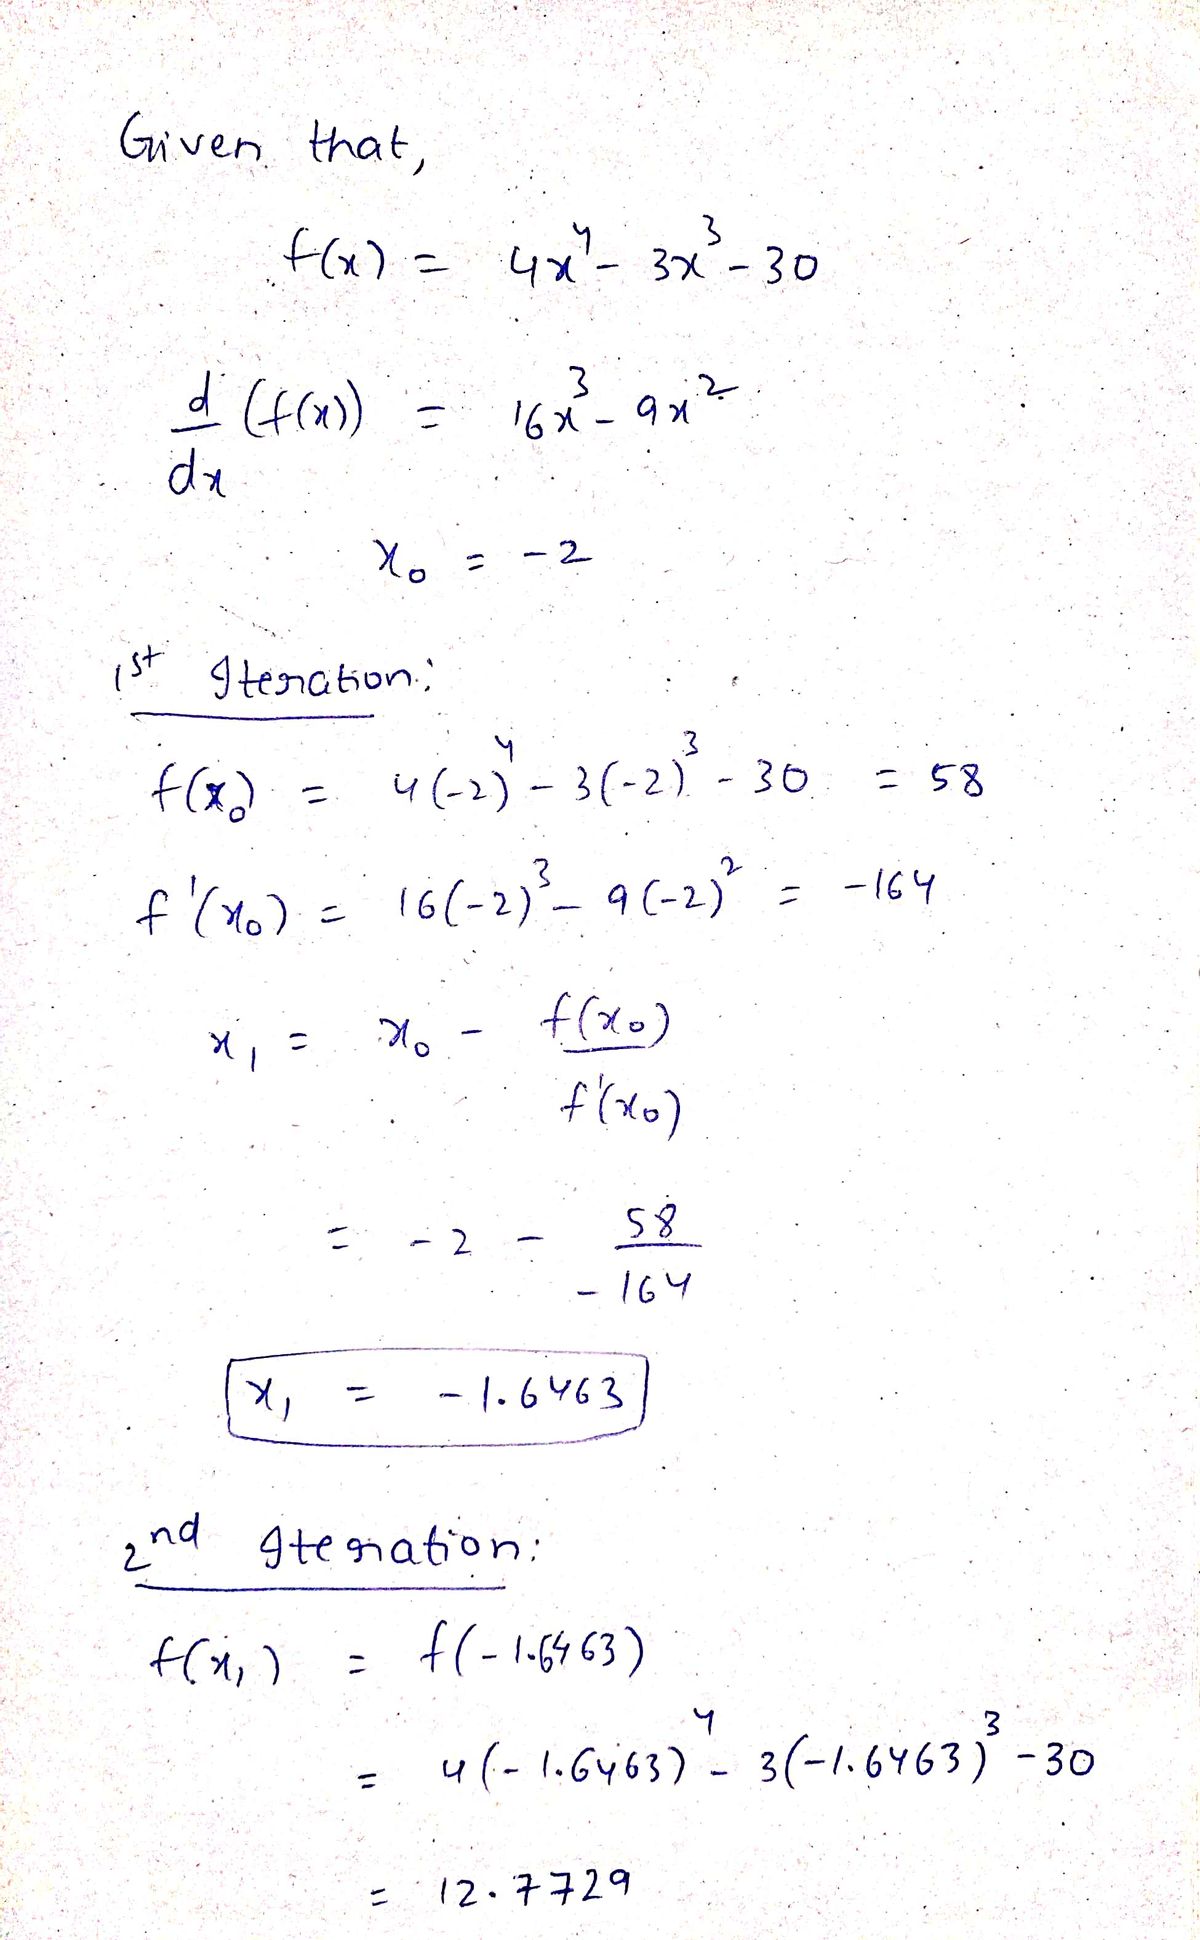 Given that,
f(x) = 4x⁴ - 3x³ - 30
d/dx (f(x)) = 16x³ - 9x²
x₀ = -2
1st Iteration:
f(x₀) = 4(-2)⁴ - 3(-2)³ - 30 = 58
f'(x₀) = 16(-2)³ - 9(-2)² = -164
x₁ = x₀ - f(x₀)/f'(x₀)
= -2 - 58/-164
x₁ = -1.6463
2nd Iteration:
f(x₁) = f(-1.6463)
= 4(-1.6463)⁴ - 3(-1.6463)³ - 30
= 12.7729